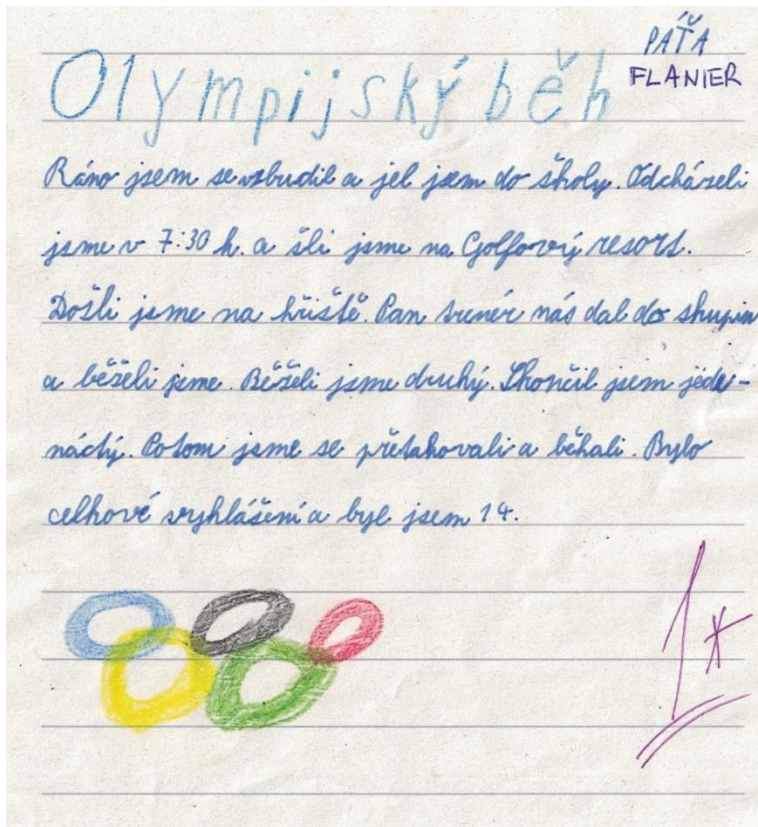 PÁŤA
Olympijský běh
FLANIER
Ráno jsem se vzbudil a jel jsem do školy. Odcházeli
jsme v 7:30 h. a šli jsme na Golfový resort.
Došli jsme na hřiště. Pan trenér nás dal do skupin
a běželi jsme. Běželi jsme druhý. Skončil jsem jede-
náctý. Potom jsme se přetahovali a běhali. Bylo
celkové vyhlášení a byl jsem 14.
1*